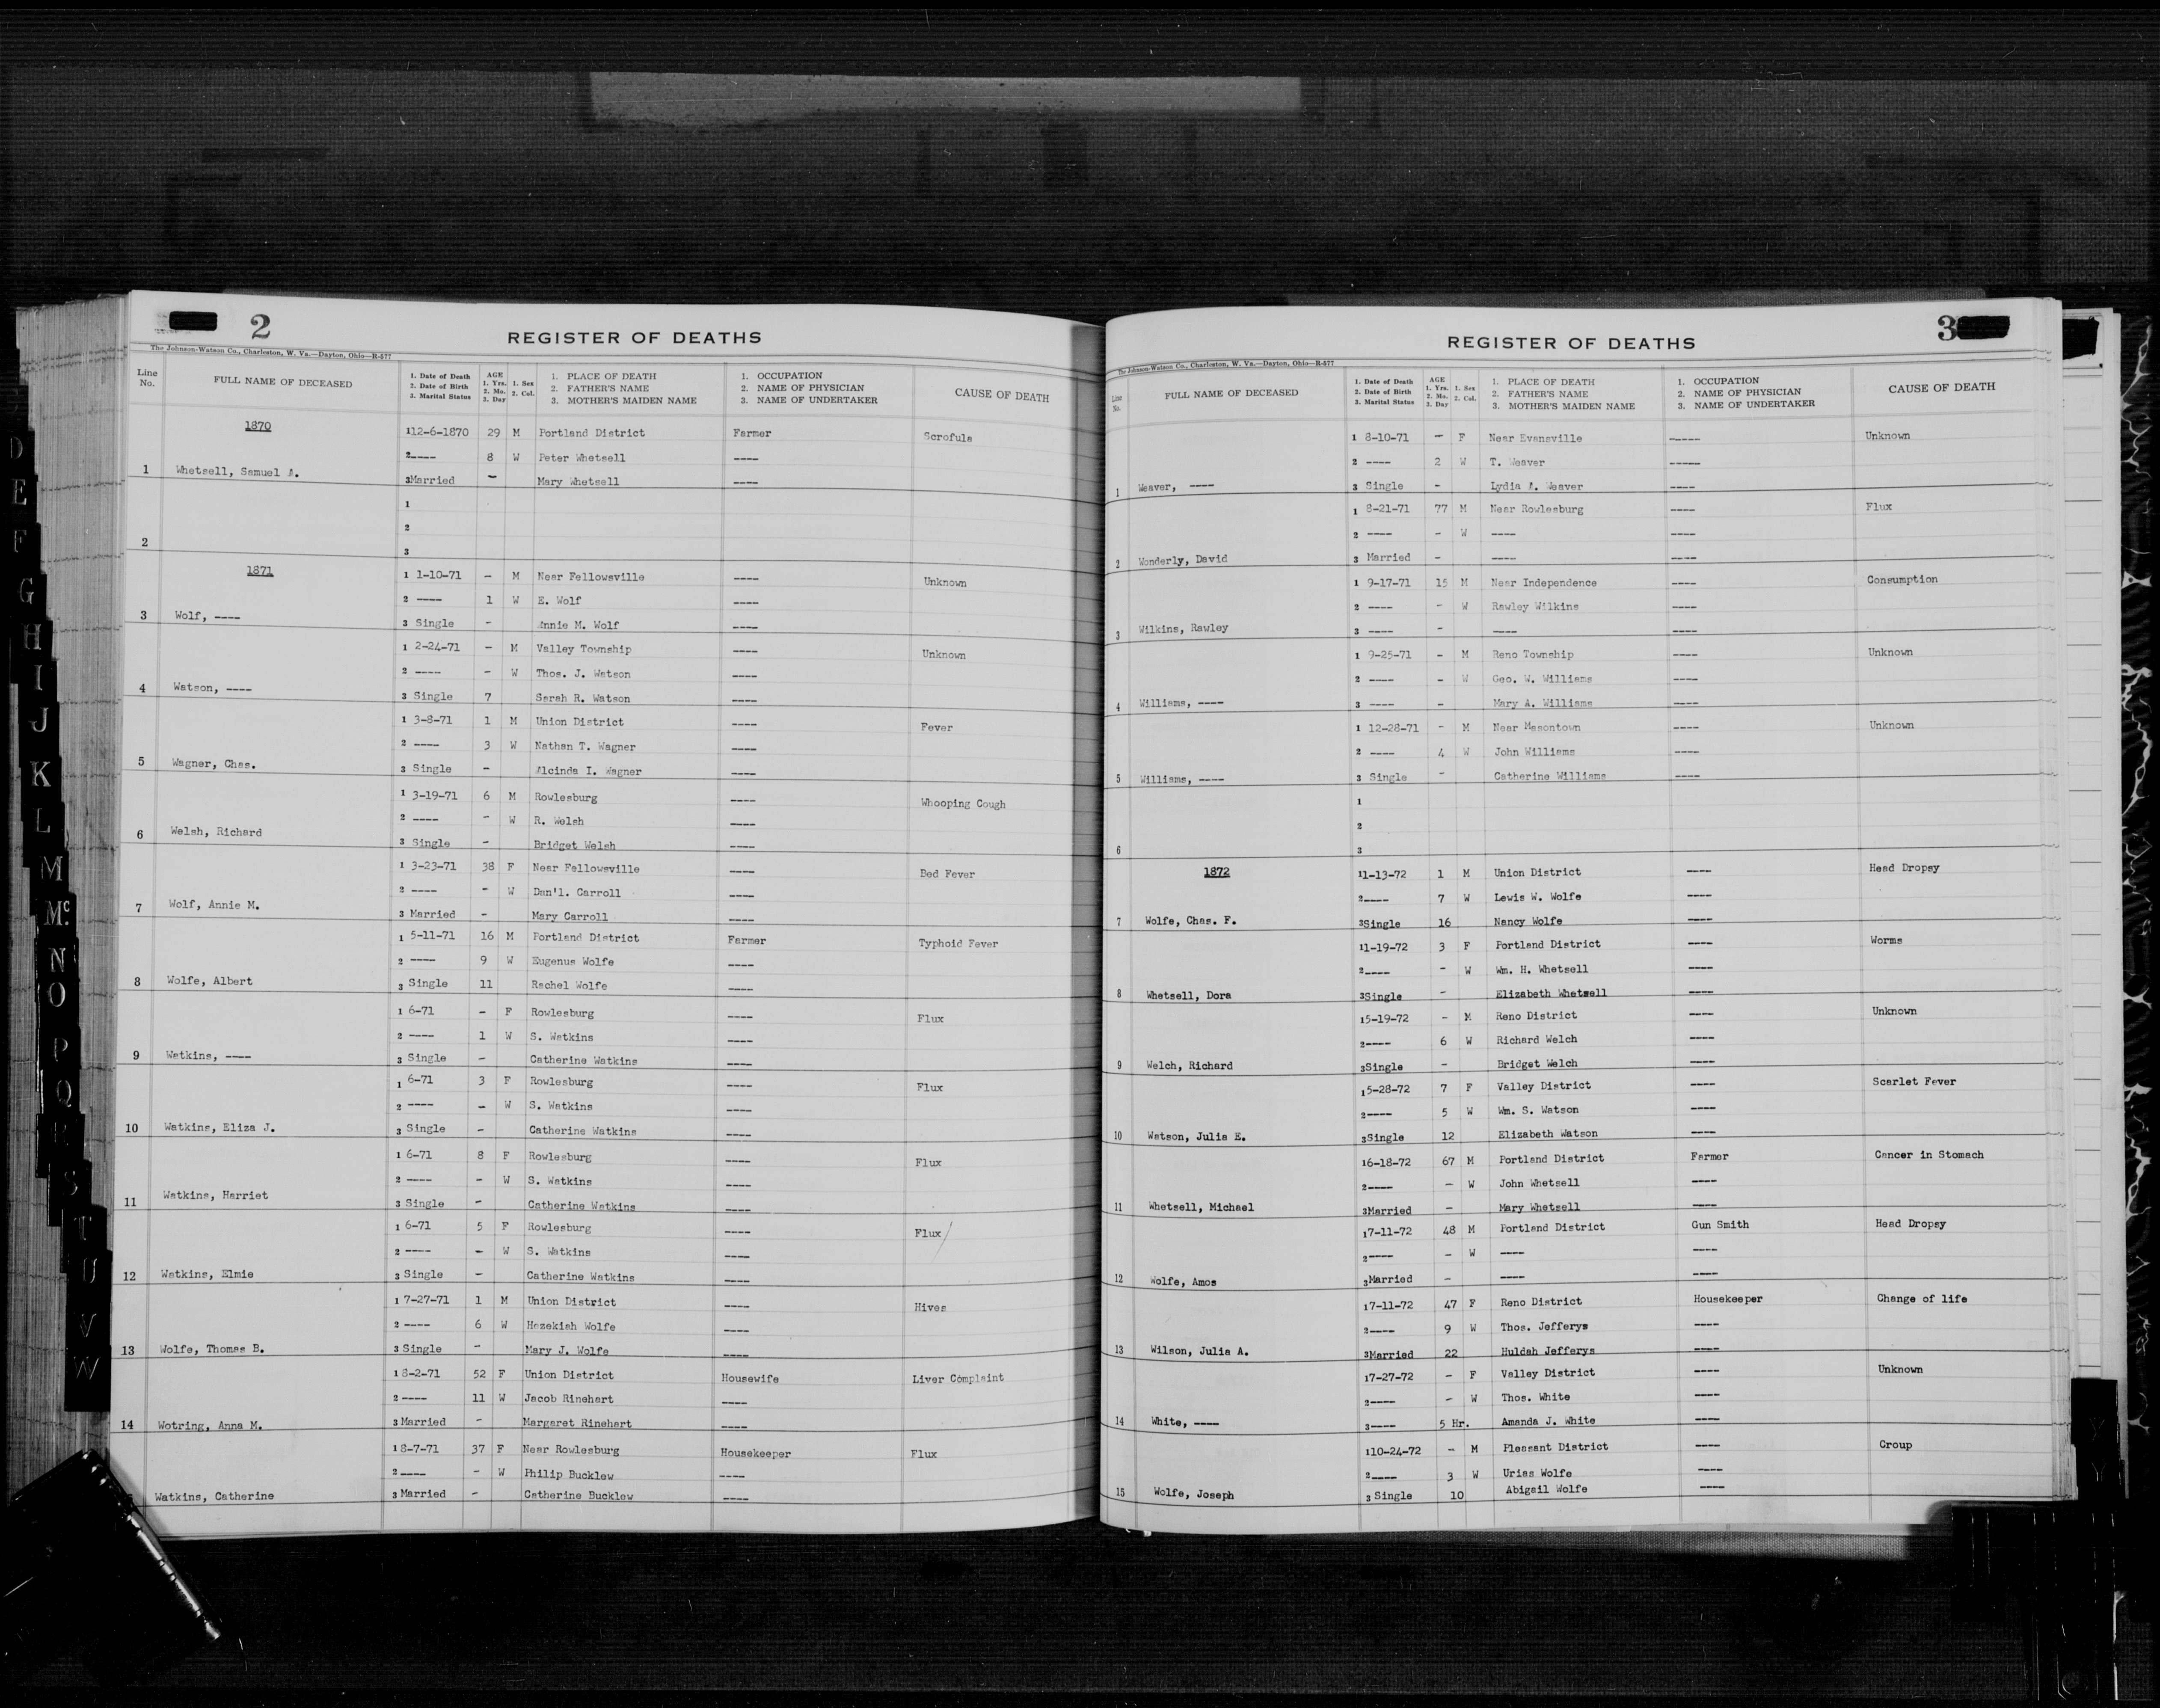 2
REGISTER OF DEATHS
The Johnson-Watson Co., Charleston, W. Va.—Dayton, Ohio—R-577
Line No. FULL NAME OF DECEASED 1. Date of Death 2. Date of Birth 3. Marital Status AGE 1. Yrs. 2. Mo. 3. Day 1. Sex 2. Col. 1. PLACE OF DEATH 2. FATHER'S NAME 3. MOTHER'S MAIDEN NAME 1. OCCUPATION 2. NAME OF PHYSICIAN 3. NAME OF UNDERTAKER CAUSE OF DEATH
1870
1 12-6-1870 29 M Portland District Farmer Scrofula
2 ---- 8 W Peter Whetsell ----
1 Whetsell, Samuel A. 3 Married - Mary Whetsell ----
1
2
2 3
1871
1 1-10-71 - M Near Fellowsville ---- Unknown
2 ---- 1 W E. Wolf ----
3 Wolf, ---- 3 Single - Annie M. Wolf ----
1 2-24-71 - M Valley Township ---- Unknown
2 ---- - W Thos. J. Watson ----
4 Watson, ---- 3 Single 7 Sarah R. Watson ----
1 3-8-71 1 M Union District ---- Fever
2 ---- 3 W Nathan T. Wagner ----
5 Wagner, Chas. 3 Single - Alcinda I. Wagner ----
1 3-19-71 6 M Rowlesburg ---- Whooping Cough
2 ---- - W R. Welsh ----
6 Welsh, Richard 3 Single - Bridget Welsh ----
1 3-23-71 38 F Near Fellowsville ---- Bed Fever
2 ---- - W Dan'l. Carroll ----
7 Wolf, Annie M. 3 Married - Mary Carroll ----
1 5-11-71 16 M Portland District Farmer Typhoid Fever
2 ---- 9 W Eugenus Wolfe ----
8 Wolfe, Albert 3 Single 11 Rachel Wolfe ----
1 6-71 - F Rowlesburg ---- Flux
2 ---- 1 W S. Watkins ----
9 Watkins, ---- 3 Single - Catherine Watkins ----
1 6-71 3 F Rowlesburg ---- Flux
2 ---- - W S. Watkins ----
10 Watkins, Eliza J. 3 Single - Catherine Watkins ----
1 6-71 8 F Rowlesburg ---- Flux
2 ---- - W S. Watkins ----
11 Watkins, Harriet 3 Single - Catherine Watkins ----
1 6-71 5 F Rowlesburg ---- Flux
2 ---- - W S. Watkins ----
12 Watkins, Elmie 3 Single - Catherine Watkins ----
1 7-27-71 1 M Union District ---- Hives
2 ---- 6 W Hezekiah Wolfe ----
13 Wolfe, Thomas B. 3 Single - Mary J. Wolfe ----
1 8-2-71 52 F Union District Housewife Liver Complaint
2 ---- 11 W Jacob Rinehart ----
14 Wotring, Anna M. 3 Married - Margaret Rinehart ----
1 8-7-71 37 F Near Rowlesburg Housekeeper Flux
2 ---- - W Philip Bucklew ----
Watkins, Catherine 3 Married - Catherine Bucklew ----
D
E
F
G
H
I
J
K
L
M
Mc
N
O
P
Q
R
S
T
U
V
W
3
REGISTER OF DEATHS
The Johnson-Watson Co., Charleston, W. Va.—Dayton, Ohio—R-577
Line No. FULL NAME OF DECEASED 1. Date of Death 2. Date of Birth 3. Marital Status AGE 1. Yrs. 2. Mo. 3. Day 1. Sex 2. Col. 1. PLACE OF DEATH 2. FATHER'S NAME 3. MOTHER'S MAIDEN NAME 1. OCCUPATION 2. NAME OF PHYSICIAN 3. NAME OF UNDERTAKER CAUSE OF DEATH
1 8-10-71 - F Near Evansville ----- Unknown
2 ---- 2 W T. Weaver -----
1 Weaver, ---- 3 Single - Lydia A. Weaver ----
1 8-21-71 77 M Near Rowlesburg ---- Flux
2 ---- - W ---- ----
2 Wonderly, David 3 Married - ---- ----
1 9-17-71 15 M Near Independence ---- Consumption
2 ---- - W Rawley Wilkins ----
3 Wilkins, Rawley 3 ---- - ---- ----
1 9-25-71 - M Reno Township ---- Unknown
2 ---- - W Geo. W. Williams ----
4 Williams, ---- 3 ---- - Mary A. Williams ----
1 12-28-71 - M Near Masontown ---- Unknown
2 ---- 4 W John Williams ----
5 Williams, ---- 3 Single - Catherine Williams ----
1
2
6 3
1872
1 1-13-72 1 M Union District ---- Head Dropsy
2 ---- 7 W Lewis W. Wolfe ----
7 Wolfe, Chas. F. 3 Single 16 Nancy Wolfe ----
1 1-19-72 3 F Portland District ---- Worms
2 ---- - W Wm. H. Whetsell ----
8 Whetsell, Dora 3 Single - Elizabeth Whetsell ----
1 5-19-72 - M Reno District ---- Unknown
2 ---- 6 W Richard Welch ----
9 Welch, Richard 3 Single - Bridget Welch ----
1 5-28-72 7 F Valley District ---- Scarlet Fever
2 ---- 5 W Wm. S. Watson ----
10 Watson, Julia E. 3 Single 12 Elizabeth Watson ----
1 6-18-72 67 M Portland District Farmer Cancer in Stomach
2 ---- - W John Whetsell ----
11 Whetsell, Michael 3 Married - Mary Whetsell ----
1 7-11-72 48 M Portland District Gun Smith Head Dropsy
2 ---- - W ---- ----
12 Wolfe, Amos 3 Married - ---- ----
1 7-11-72 47 F Reno District Housekeeper Change of life
2 ---- 9 W Thos. Jefferys ----
13 Wilson, Julia A. 3 Married 22 Huldah Jefferys ----
1 7-27-72 - F Valley District ---- Unknown
2 ---- - W Thos. White ----
14 White, ---- 3 ---- 5 Hr. Amanda J. White ----
1 10-24-72 - M Pleasant District ---- Croup
2 ---- 3 W Urias Wolfe ----
15 Wolfe, Joseph 3 Single 10 Abigail Wolfe ----